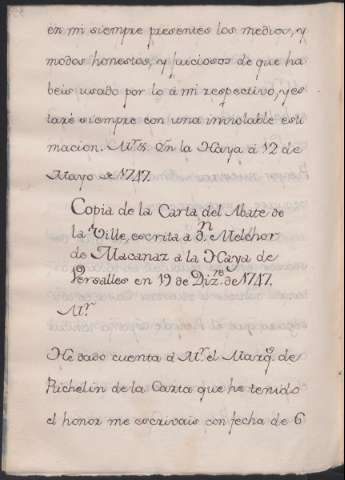 en mi siempre presentes los medios, y
modos honestos, y juiciosos de que ha
beis usado por lo á mi respectivo, y es
taré siempre con una inviolable esti
macion. M.r &. En la Haya á 12 de
Mayo de 1747.
Copia de la Carta del Abate de
la Ville, escrita á d.n Melchor
de Macanaz á la Haya de
Versalles en 19 de Diz.re de 1747.
M.r
He dado cuenta á M.r el Marq.s de
Richelin de la Carta que he tenido
el honor me escrivais con fecha de 6